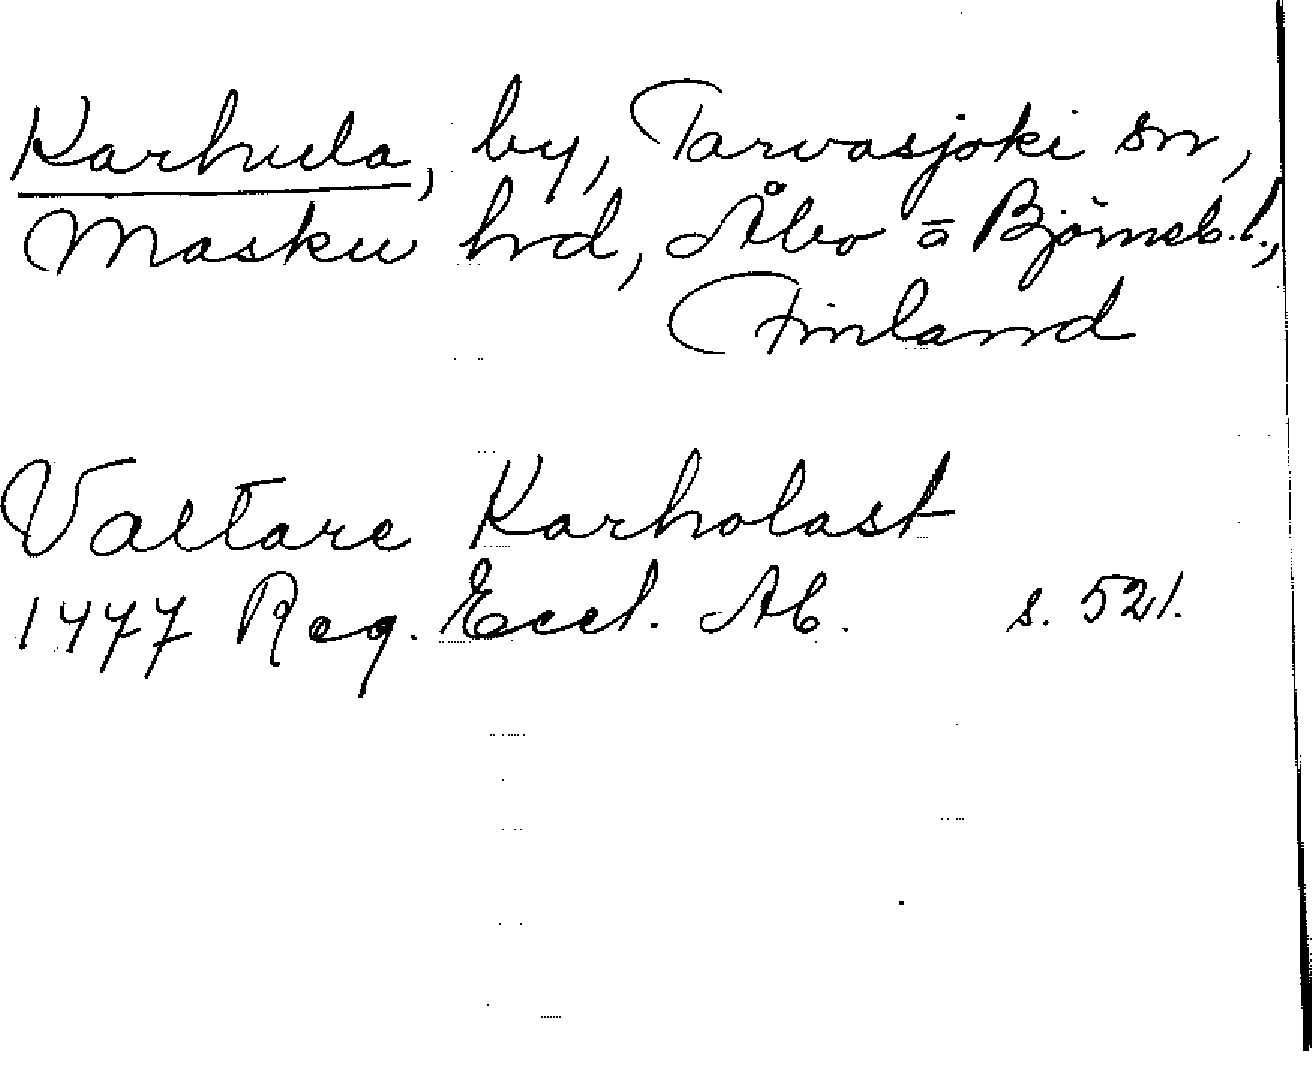 Karhula, by, Tarvasjoki sn,
Masku hrd, Åbo o Björneb. l.,
Finland
Valtare Karholast
1477 Reg. Eccl. Ab. s. 521.